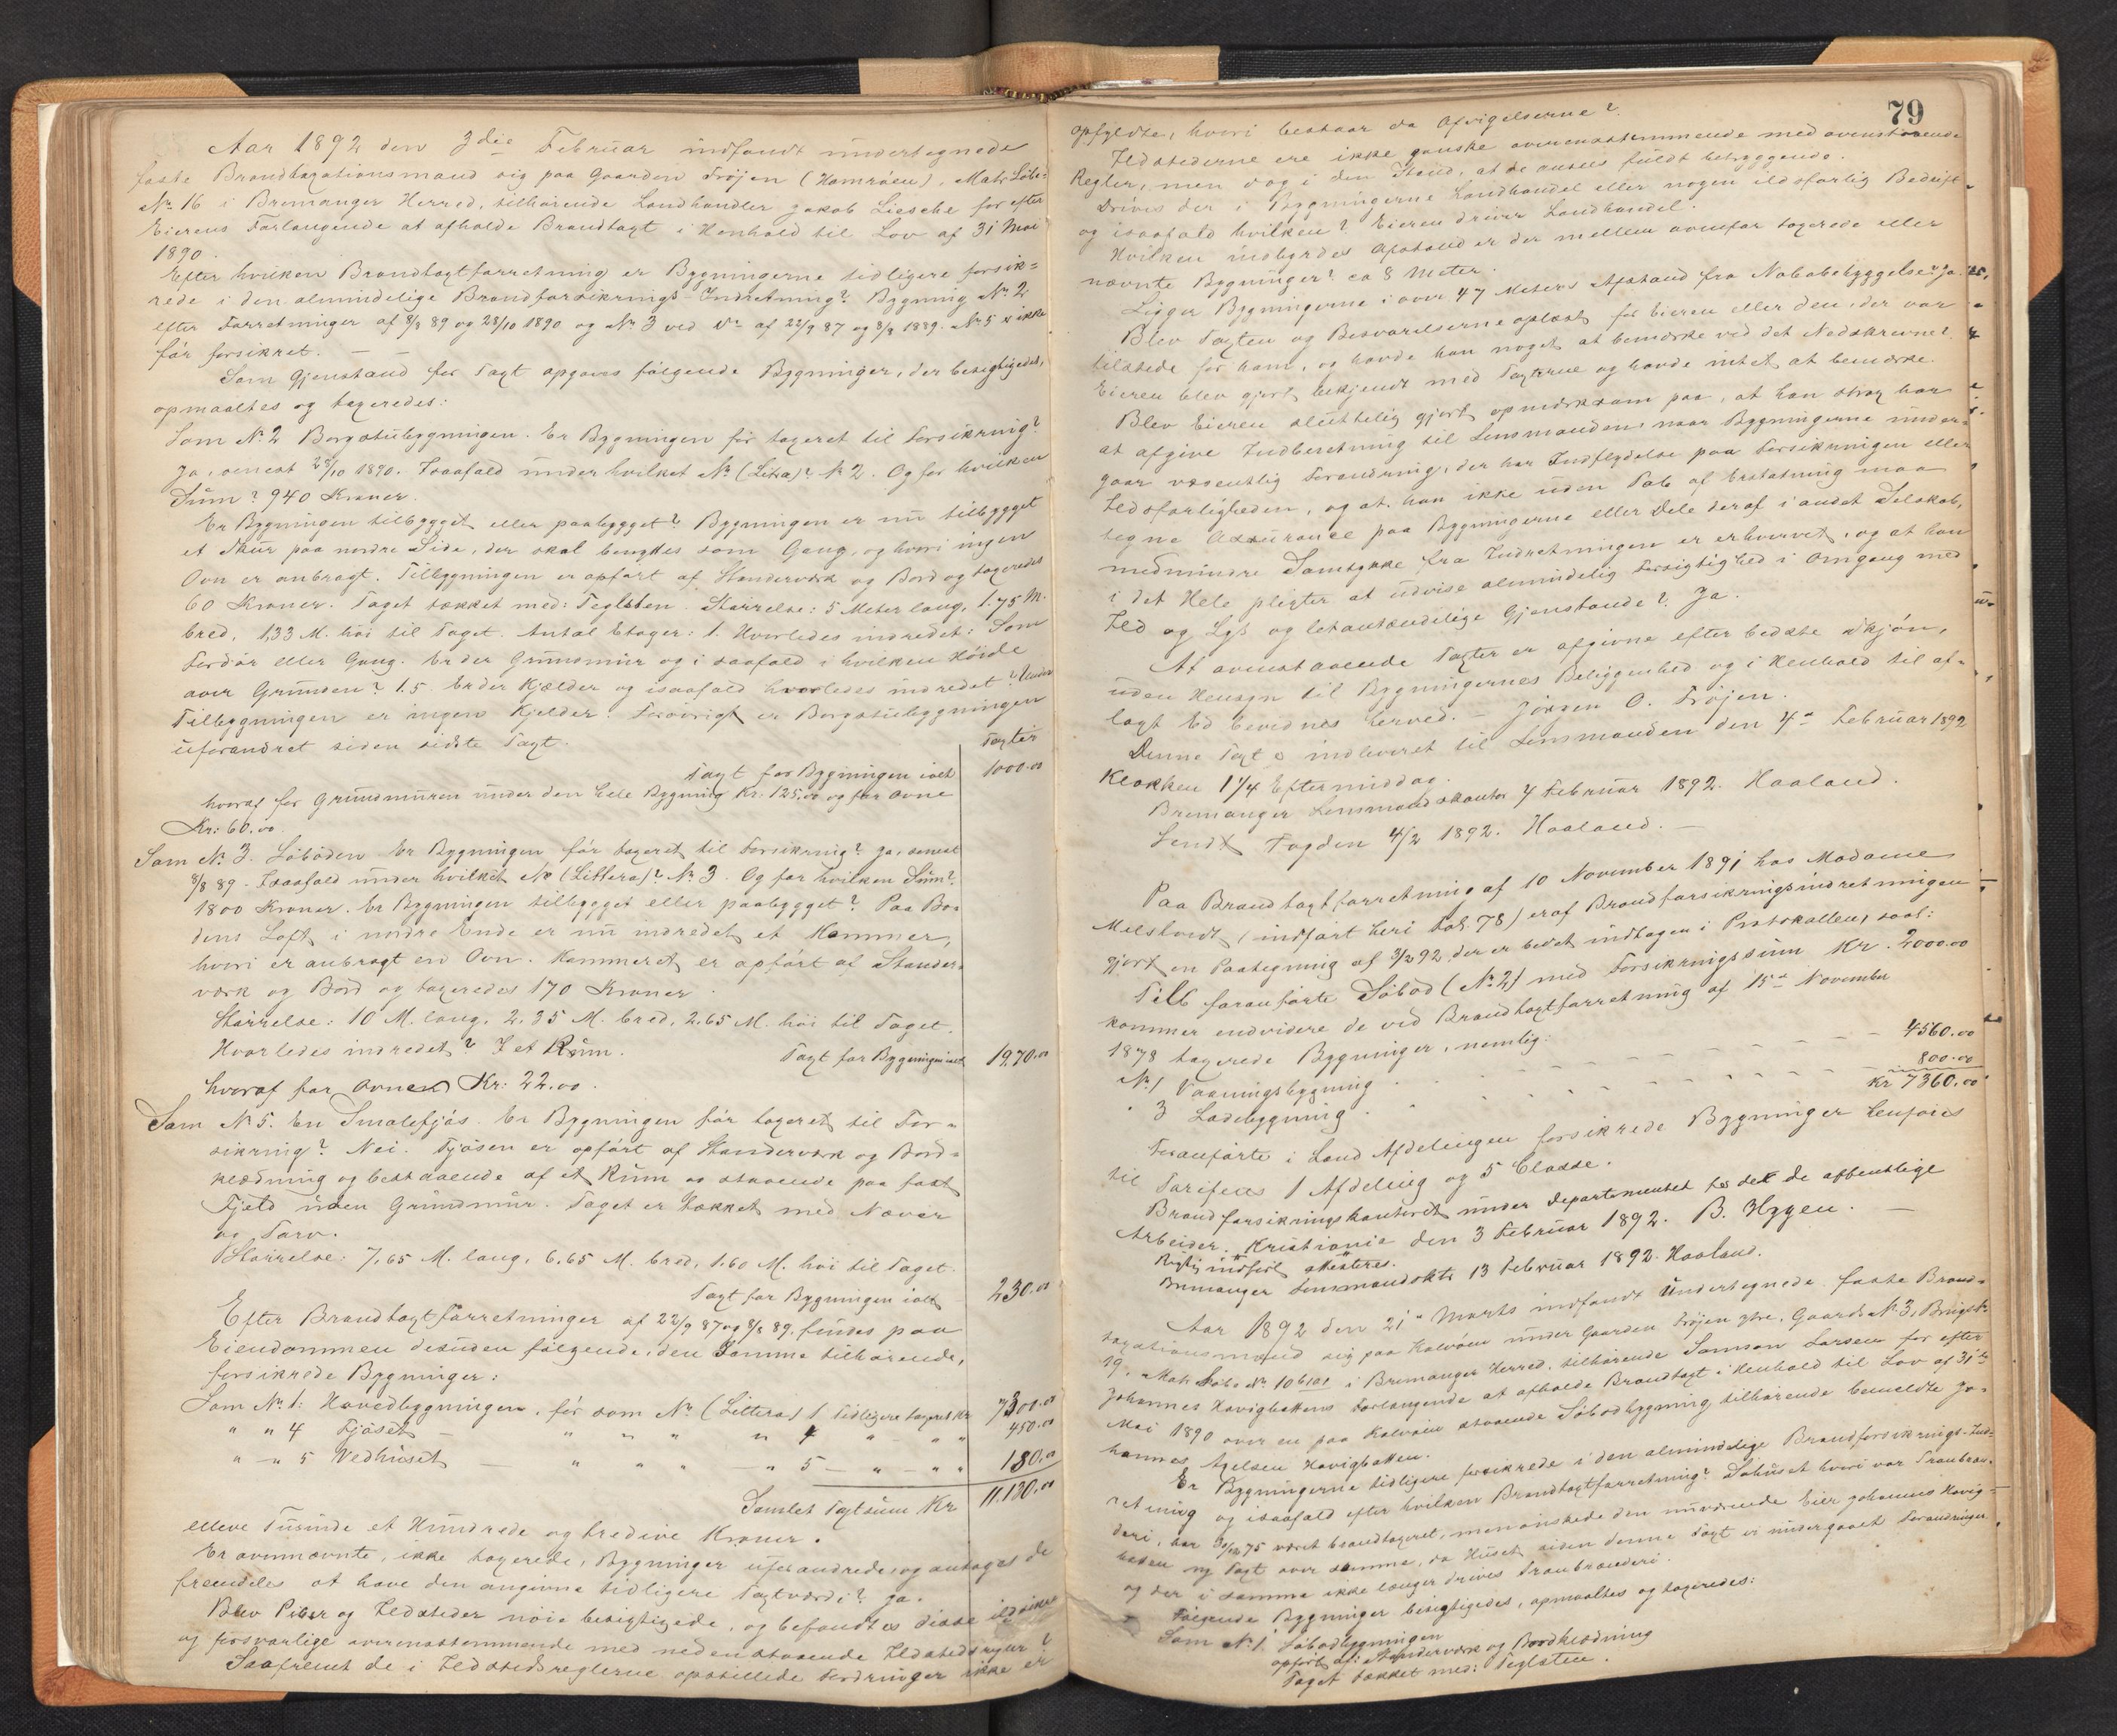 Aar 1892 den 3die Februar indfandt undertegnede
faste Brandtaxationsmand sig paa Gaarden Frøjen (Hamrøen), Matr. Løbe-
No 16 i Bremanger Herred, tilhørende Landhandler Jakob Liesche for efter
Eierens Forlangende at afholde Brandtaxt i Henhold til Lov af 31 Mai
1890.
Efter hvilken Brandtaxtforretning er Bygningerne tidligere forsik=
rede i den almindelige Brandforsikrings-Indretning? Bygning No 2
efter Forretninger af 8/8 89 og 28/10 1890 og No 3 ved do af 22/9 87 og 8/8 1889. No 5 er ikke
før forsikret. —
Som Gjenstand for Taxt opgaves følgende Bygninger, der besigtigedes,
opmaaltes og taxeredes:
Som No 2 Borgstubygningen. Er Bygningen før taxeret til Forsikring?
Ja, senest 28/10 1890. Isaafald under hvilket No (Litra)? No 2. Og for hvilken
Sum? 940 Kroner.
Er Bygningen tilbygget eller paabygget? Bygningen er nu tilbygget
et Skur paa nordre Side, der skal benyttes som Gang, og hvori ingen
Ovn er anbragt. Tilbygningen er opført af Standerværk og Bord og taxeredes
60 Kroner. Taget tækket med: Teglsten. Størrelse: 5 Meter lang, 1.75 M.
bred, 1,33 M. høi til Taget. Antal Etager: 1. Hvorledes indredet: Som
Fordør eller Gang. Er der Grunmur og i saafald i hvilken Høide
over Grunden? 1.5 Er der Kjælder og isaafald hvorledes indredet? Under
Tilbygningen er ingen Kjelder. Forøvrigt er Borgstubygningen
uforandret siden sidste Taxt.
Taxter
Taxt for Bygningen ialt 1000.00
hvoraf for Grundmuren under den hele Bygning Kr. 125.00 og for Ovne
Kr: 60.00.
Som No 3. Søboden Er Bygningen før taxeret til Forsikring? Ja, senest
8/8 89. Isaafald under hvilket No (Littera)? No 3. Og for hvilken Sum?
1800 Kroner. Er Bygningen tilbygget eller paabygget? Paa Bo-
dens Loft i nordre Ende er nu indredet et Kammer,
hvori er anbragt en Ovn. Kammeret er opført af Stander-
værk og Bord og taxeredes 170 Kroner.
Størrelse: 10 M. lang, 2,35 M. bred, 2.65 M. høi til Taget.
Hvorledes indredet? I et Rum. Taxt for Bygningen ialt 1970.00
hvoraf for Ovnen Kr: 22.00.
Som No 5. En Smalefjøs. Er Bygningen før taxeret til For-
sikring? Nei. Fjøsen er opført af Standerværk og Bord-
klædning og bestaaende af et Rum og staaende paa fast
Fjeld uden Grundmur. Taget er tækket med Næver
og Torv.
Størrelse: 7,65 M. lang, 6,65 M. bred, 1.60 M. høi til Taget.
Taxt for Bygningen ialt 230.00
Efter Brandtaxtforretninger af 22/9 87 og 8/8 89. findes paa
Eiendommen desuden følgende, den Samme tilhørende,
forsikrede Bygninger:
Som No 1: Hovedbygningen, før som No (Littera) 1 Tidligere taxeret Kr 7300.00
" " 4 Fjøset — " " " " 4 " " " 450.00
" — " 5 Vedhuset — " " " — " 5 — " — " " 180.00
Samlet Taxtsum Kr 11.130.00
elleve Tusinde et Hundrede og tredive Kroner.
Er ovennævnte, ikke taxerede, Bygninger uforandrede og antages de
fremdeles at have den angivne tidligere Taxtværdi? Ja.
Blev Piber og Ildsteder nøie besigtigede, og befandtes disse ildsikre
og forsvarlige overensstemmende med nedenstaaende Ildstedsregler?
Saafremt de i Ildstedsreglerne opstillede Fordringer ikke er
79
opfyldte, hvori bestaar da Afvigelserne?
Ildstederne ere ikke ganske overensstemmende med ovenstaaende
Regler, men dog i den Stand, at de ansees fuldt betryggende.
Drives der i Bygningerne Landhandel eller nogen ildsfarlig Bedrift
og isaafald hvilken? Eieren driver Landhandel.
Hvilken indbyrdes Afstand er der mellem ovenfor taxerede eller
nævnte Bygninger? ca 8 Meter.
Ligger Bygningerne i over 47 Meters Afstand fra Nabobebyggelse? Ja.
Blev Taxten og Besvarelserne oplæst for Eieren eller den, der var
tilstede for ham, og havde han noget at bemærke ved det Nedskrevne?
Eieren blev gjort bekjendt med Taxterne og havde intet at bemærke.
Blev Eieren sluttelig gjort opmærksom paa, at han strax har
at afgive Indberetning til Lensmanden, naar Bygningerne under-
gaar væsentlig Forandring, der har Indflydelse paa Forsikringen eller
Ildsfarligheden, og at han ikke uden Tab af Erstatning maa
tegne Assurance paa Bygningerne eller Dele deraf i andet Selskab,
medmindre Samtykke fra Indretningen er erhvervet, og at han
i det Hele pligter at udvise almindelig Forsigtighed i Omgang med
Ild og Lys og letantændelige Gjenstande? Ja.
At ovenstaaende Taxter er afgivne efter bedste Skjøn,
uden Hensyn til Bygningernes Beliggenhed og i Henhold til af-
lagt Ed bevidnes herved. — Jørgen O. Frøjen.
Denne Taxt er indleveret til Lensmanden den 4de Februar 1892
Klokken 1 1/4 Eftermiddag.
Bremanger Lensmandskontor 4 Februar 1892. Haaland.
Sendt Fogden 4/2 1892. Haaland. —
Paa Brandtaxtforretning af 10 November 1891 hos Madame
(indført heri Fol. 78) er af Brandforsikringsindretningen
gjort en Paategning af 3/2 92, der er bedet indtagen i Protokollen, saal:
Till foranførte Søbod (No 2) med Forsikringssum Kr. 2000.00
kommer endvidere de ved Brandtaxtforretning af 15de November
1878 taxerede Bygninger, nemlig:
No 1 Vaaningsbygning — — — 4560.00
" 3 Ladebygning — — — 800.00
Kr 7360.00
Foranførte i Land Afdelingen forsikrede Bygninger henføres
til Tarifens 1 Afdeling og 5 Classe.
Brandforsikringskontoret under Departementet for det de offentlige
Arbeider. Kristiania den 3 Februar 1892. B. Hygen. —
Rigtig indført attesteres.
Bremanger Lensmandsktr 13 Februar 1892. Haaland.
Aar 1892 den 21de Marts indfandt Undertegnede faste Brand-
taxationsmand sig paa Kalvøen under Gaarden Frøjen ytre, Gaards No 3, Brugsno
19, Matr. Løbe No 10 i Bremanger Herred, tilhørende Samson Larsen for efter
Johannes Havigbottens Forlangende at afholde Brandtaxt i Henhold til Lov af 31te
Mai 1890 over en paa Kalvøen staaende Søbodbygning tilhørende bemeldte Jo-
hannes Havigbotten.
Er Bygningerne tidligere forsikrede i den almindelige Brandforsikrings-Ind-
retning og isaafald efter hvilken Brandtaxtforretning? Søhuset hvori var Tranbræn-
deri, har 75 været brandtaxeret, men ønskede den nuværende Eier Johannes Havig-
botten ny Taxt over samme, da Huset siden denne Taxt er undergaaet Forandringer
og der i samme ikke længer drives Tranbrænderi.
Følgende Bygninger besigtigedes, opmaaltes og taxeredes:
Som No 1. Søbodbygningen
opført af: Standerværk og Bordklædning
Taget tækket med: Teglsten.